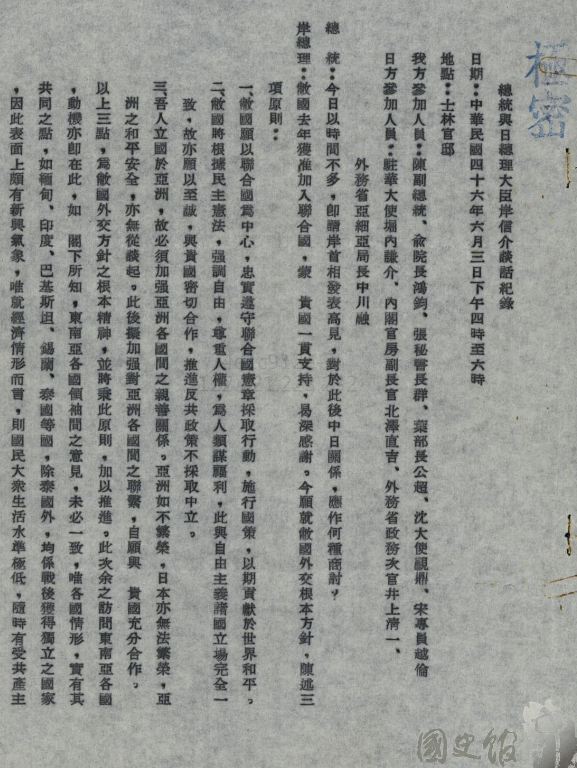 極密
總統與日總理大臣岸信介談話紀錄
日期:中華民國四十六年六月三日下午四時至六時
地點:士林官邸
我方參加人員:陳副總統、俞院長鴻鈞、張秘書長群、葉部長公超、沈大使覲鼎、宋專員越倫
日方參加人員:駐華大使堀內謙介、內閣官房副長官北澤直吉、外務省政務次官井上清一、
外務省亞細亞局長中川融
總 統:今日以時間不多,卽請岸首相發表高見,對於此後中日關係,應作何種商討?
岸總理:敝國去年獲准加入聯合國,蒙 貴國一貫支持,曷深感謝。今願就敝國外交根本方針,陳述三
項原則:
一、敝國願以聯合國爲中心,忠實遵守聯合國憲章採取行動,施行國策,以期貢獻於世界和平。
二、敝國將根據民主憲法,强調自由,尊重人權,爲人類謀福利,此與自由主義諸國立場完全一
致,故亦願以至誠,與貴國密切合作,推進反共政策不採取中立。
三、吾人立國於亞洲,故必須加强亞洲各國間之親善關係。亞洲如不繁榮,日本亦無法繁榮,亞
洲之和平安全,亦無從談起。此後擬加强對亞洲各國間之聯繫,自願與 貴國充分合作。
以上三點,爲敝國外交方針之根本精神,並將秉此原則,加以推進。此次余之訪問東南亞各國
,動機亦卽在此,如 閣下所知,東南亞各國領袖間之意見,未必一致,唯各國情形,實有其
共同之點,如緬甸、印度、巴基斯坦、錫蘭、泰國等國,除泰國外,均係戰後獲得獨立之國家
,因此表面上頗有新興氣象,唯就經濟情形而言,則國民大衆生活水準極低,隨時有受共產主
國史館